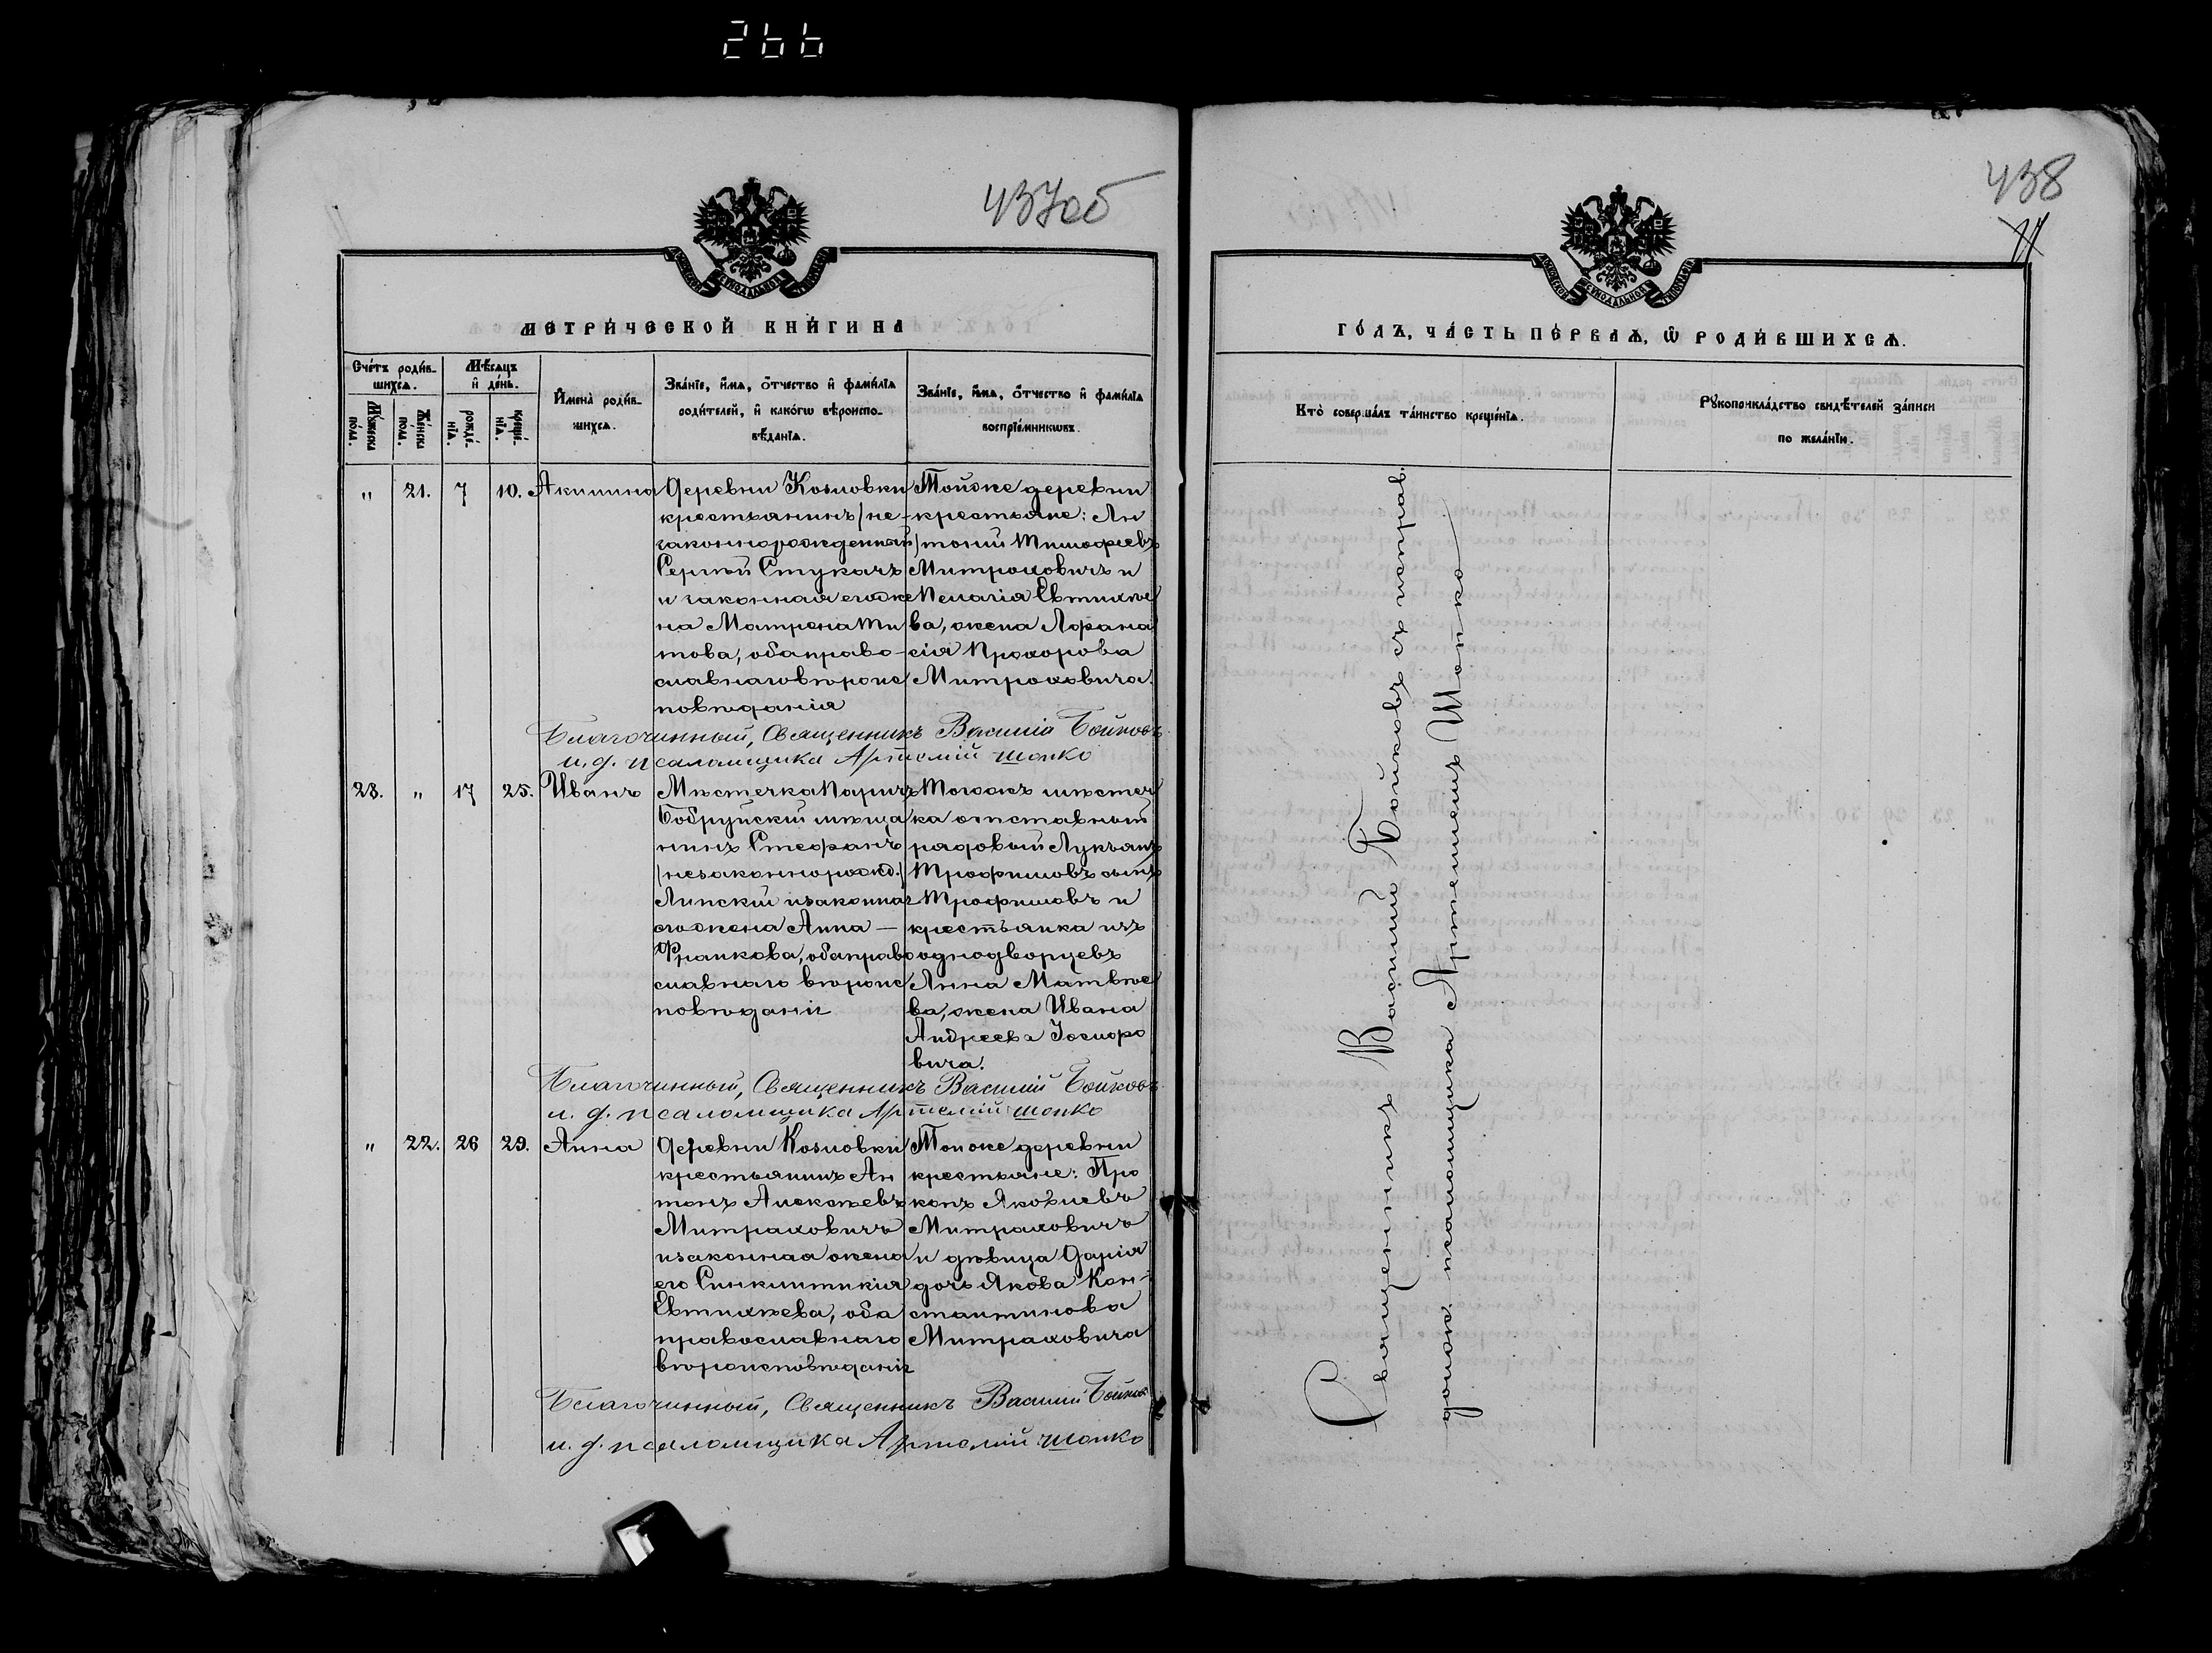 266
437об
МЕТРИЧЕСКОЙ КНИГИ НА
Счетъ родив-
шихся.
Мѣсяцъ
и день.
Мужеска
пола.
Женска
пола.
рожде-
нія.
креще-
нія.
Имена родив-
шихся.
Званіе, имя, отчество и фамилія
родителей, и какого вѣроиспо-
вѣданія.
Званіе, имя, отчество и фамилія
воспріемниковъ.
" 21. 7 10. Акилина
Деревни Козловки
крестьянинъ /не-
законнорожденный/
Сергѣй Стукачъ
и законная его же
на Матрена Ти
това, оба право-
славнаго вѣроис
повѣданія
Тойже деревни
крестьяне: Ан
тоній Тимофеевъ
Митроховичъ и
Пелагія Евтихѣе
ва, жена Афана
сія Прохорова
Митроховича.
Благочинный, Священникъ Василій Бойковъ
и. д. псаломщика Артемій Шопко
28. " 17 25. Иванъ
Мѣстечка Паричъ
Бобруйскій мѣща
нинъ Стефанъ
/незаконнорожд./
Липскій и законная
его жена Анна —
Франкова, оба право
славнаго вѣроис
повѣданія
Тогожъ мѣстеч
ка отставный
рядовый Лукьянъ
Трофимовъ сынъ
Трофимовъ и
крестьянка изъ
однодворцевъ
Анна Матвѣе
ва, жена Ивана
Андреева
вича.
Благочинный, Священникъ Василій Бойковъ
и. д. псаломщика Артемій Шопко
" 22. 26 29. Анна
Деревни Козловки
крестьянинъ Ан
тонъ Алексѣевъ
Митраховичъ
и законная жена
его Синклитикія
Евтихѣева, оба
православнаго
вѣроисповѣданія
Тойже деревни
крестьяне: Про
копъ Яковлевъ
Митраховичъ
и дѣвица Дарія
дочь Якова Кон-
стантинова
Митраховича
Благочинный, Священникъ Василій Бойковъ
и. д. псаломщика Артемій Шопко
438
ГОДЪ, ЧАСТЬ ПЕРВАЯ, Ѡ РОДИВШИХСЯ.
Кто совершалъ таинство крещенія.
Рукоприкладство свидѣтелей записи
по желанію.
Священникъ Василій Бойковъ съ исправ.
долж. псаломщика Артемемъ Шопко